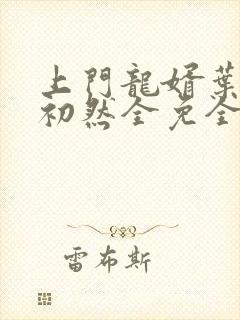 上門龍婿葉
初然全免全
雷布斯